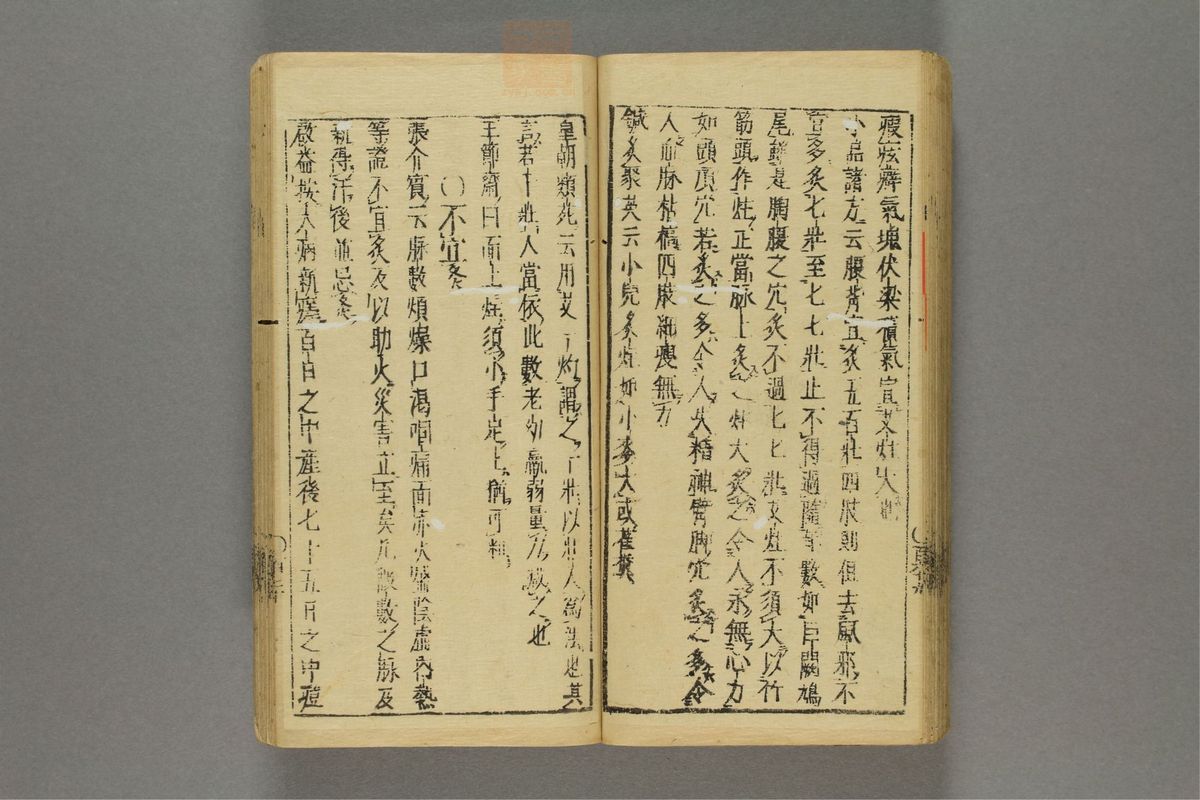 瘦痃癖氣塊伏梁積氣宜艾炷大
小品諸方云腹背宜灸五百壯四肢則但去風邪不
宜多灸七壯至七七壯止不得過隨年數如巨闕鳩
尾雖是胸腹之穴灸不過七七壯艾炷不須大以竹
筋頭作炷正當脉上灸之炷大灸之令人永無心力
如頭頂穴若灸之多令人失精神臂脚穴灸之多令
人血脉枯槁四肢細瘦無力
鍼灸聚英云小兒灸炷如小麥大或雀糞
皇朝類苑云用艾一灼謂之一壯以壯人爲法也其
言若十壯人當依此數老幼羸弱量力減之也
王節齋曰面上炷須小手足上猶可粗
〇不宜灸
張介賓云脉數煩燥口渴咽痛面赤火盛陰虛內熱
等證不宜灸反以助火災害立至矣凡微數之脉及
新得汗後並忌灸
啟益按大病新瘥百日之中產後七十五日之中